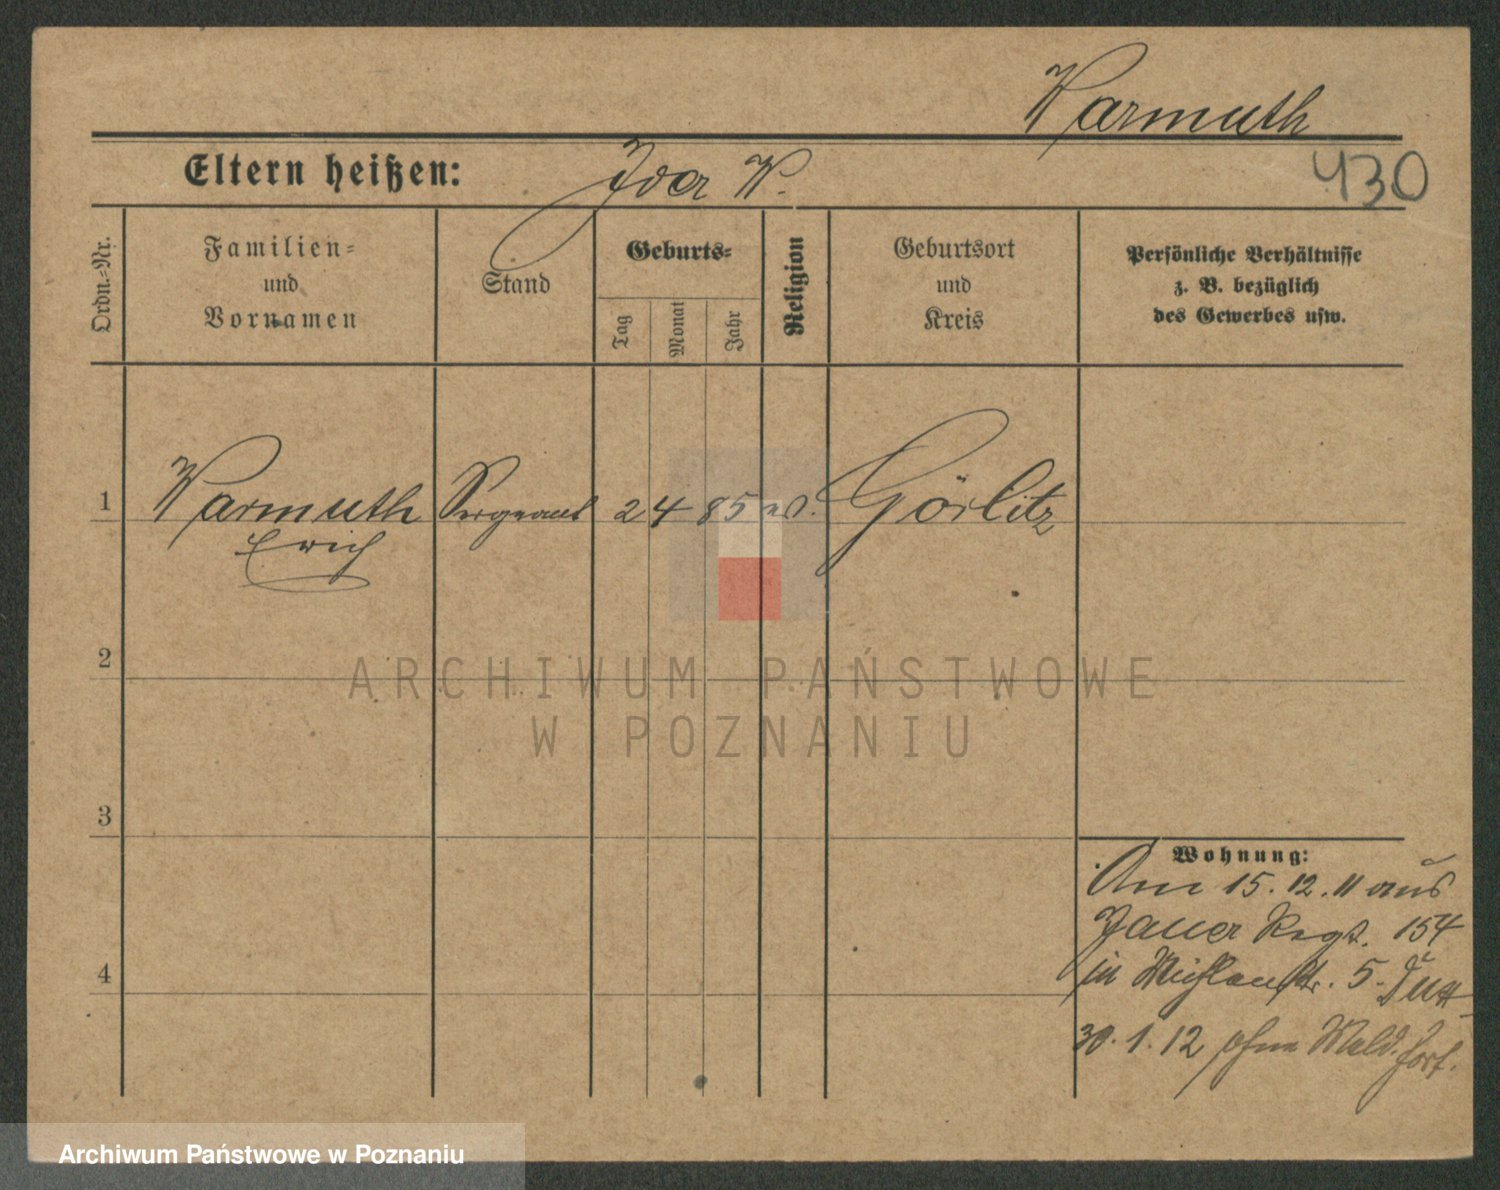 Warmuth
Eltern heißen: Ida W.
430
Ordn.=Nr.
Familien=
und
Vornamen
Stand
Geburts=
Tag Monat Jahr
Religion
Geburtsort
und
Kreis
Persönliche Verhältnisse
z. B. bezüglich
des Gewerbes usw.
1 Warmuth Sergeant 2 4 85 ev. Görlitz
Erich
2
ARCHIWUM PAŃSTWOWE
W POZNANIU
3
Wohnung:
Am 15. 12. 11 aus
Jauer Regt. 154
4
in 5.
30. 1. 12 ohne Meld. fort.
Archiwum Państwowe w Poznaniu